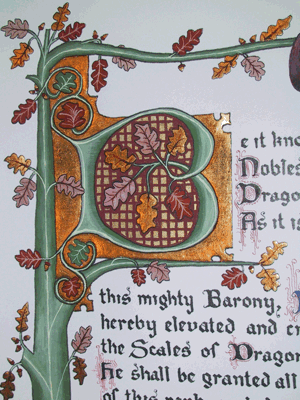 Be it kno
Nobles
Drago
As it is
this mighty Barony,
hereby elevated and
the Scales of Dragon
he shall be granted all
of this rank